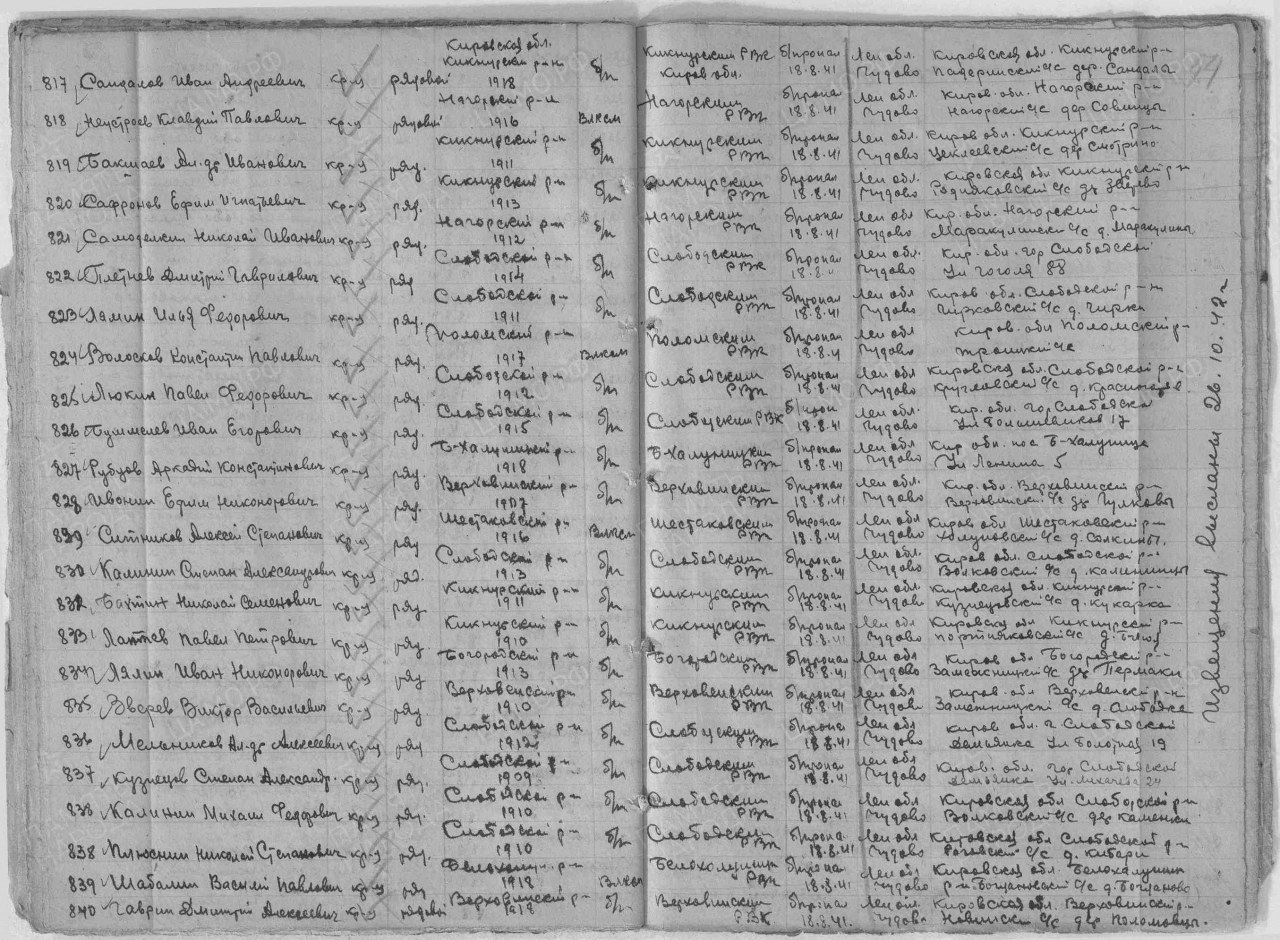 Кировская обл.
817 Сандалов Иван Андреевич кр-ц рядовой Кикнурский р-н 1918 б/п Кикнурским РВК Киров. обл. б/пропал 18.8.41 Лен обл Чудово Кировская обл. Кикнурский р-н Падеринский с/с дер. Сандалы
818 Неустроев Клавдий Павлович кр-ц рядовой Нагорский р-н 1916 ВЛКСМ Нагорским РВК б/пропал 18.8.41 Лен обл. Чудово Киров. обл. Нагорский р-н Нагорский с/с дер
819 Бакшаев Ал-др Иванович кр-ц ряд. Кикнурский р-н 1911 б/п Кикнурским РВК б/пропал 18.8.41 Лен обл. Чудово Киров обл. Кикнурский р-н Цеклеевский с/с дер Смотрино
820 Сафронов Ефим Игнатьевич кр-ц ряд. Кикнурский р-н 1913 б/п Кикнурским РВК б/пропал 18.8.41 Лен обл. Чудово Кировская обл Кикнурский р-н с/с д.
821 Самоделкин Николай Иванович кр-ц ряд. Нагорский р-н 1912 б/п Нагорским РВК б/пропал 18.8.41 Лен обл. Чудово Кир. обл. Нагорский р-н с/с д. Маракулины
822 Плетнев Дмитрий Гаврилович кр-ц ряд Слободской р-н 1914 б/п Слободским РВК б/пропал 18.8. Лен обл. Чудово Кир. обл. гор Слободской Ул Гоголя 88
823 Лямин Илья Федорович кр-ц ряд. Слободской р-н 1911 б/п Слободским РВК б/пропал 18.8.41 Лен обл Чудово Киров обл. Слободской р-н с/с д. Чирки
824 Волосков Константин Павлович кр-ц ряд. Поломский р-н 1917 ВЛКСМ Поломским РВК б/пропал 18.8.4 Лен обл Чудово Киров. обл Поломский р- Троицкий с/с
825 Люкин Павел Федорович кр-ц ряд. Слободской р-н 1912 б/п Слободским РВК б/пропал 18.8.41 Лен обл Чудово Кировская обл. Слободской р-н Кругловский с/с д.
826 Иван Егорович кр-ц ряд. Слободской р-н 1915 б/п Слободским РВК б/проп 18.8.41 Лен обл. Чудово Кир. обл. гор. Слободской Ул Большевиков 17
827 Рубцов Аркадий Константинович кр-ц ряд. Б-Халуницкий р-н 1918 б/п Б-Халуницким РВК б/пропал 18.8.41 Лен обл Чудово Кир обл. пос Б-Халуница Ул Ленина 5
828 Ивонин Ефим Никонорович кр-ц ряд. Верховинский р-н 1907 б/п Верховинским РВК б/пропал 18.8.41 Лен обл. Чудово Кир. обл. Верховинский р-н Верховинский с/с др.
829 Ситников Алексей Степанович кр-ц ряд Шестаковский р-н 1916 ВЛКСМ Шестаковским РВК б/пропал 18.8.41 Лен обл. Чудово Киров обл Шестаковский р-н Холуновский с/с д.
830 Калинин Степан Александрович кр-ц ряд. Слободской р-н 1913 б/п Слободским РВК б/пропал 18.8.41 Лен обл. Чудово Киров обл. Слободской р-н Волковский с/с д. Калинницы
832 Бахтин Николай Семенович кр-ц ряд Кикнурский р-н 1911 б/п Кикнурским РВК б/пропал 18.8.41 Лен обл. Чудово Кировская обл Кикнурский р-н Кузнецовский с/с д. Кукарка
833 Лаптев Павел Петрович кр-ц ряд. Кикнурский р-н 1910 б/п Кикнурским РВК б/пропал 18.8.41 Лен обл. Чудово Кировская обл Кикнурский р-н с/с д.
834 Лялин Иван Никонорович кр-ц ряд Богородский р-н 1913 б/п Богородским РВК б/пропал 18.8.41 Лен обл Чудово Киров обл Богородский р-н с/с др Пермяки
835 Зверев Виктор Васильевич кр-ц ряд Верховенский р-н 1910 б/п Верховенским РВК б/пропал 18.8.41 Лен обл Чудово Киров. обл Верховенский р-н с/с д. Слободка
836 Мельников Ал-др Алексеевич кр-ц ряд Слободской р-н 1912 б/п Слободским РВК б/пропал 18.8.41 Лен обл. Чудово Киров обл. г. Слободской Демьянка Ул Болотная 19
837 Кузнецов Степан Александр. кр-ц ряд. Слободской р-н 1909 б/п Слободским РВК б/пропал 18.8.41 Лен обл. Чудово Киров. обл. гор Слободской Демьянка Ул. Лихачева 24
838 Калинин Михаил Федорович кр-ц ряд. Слободской р-н 1910 б/п Слободским РВК б/пропал 18.8.41 Лен обл Чудово Кировская обл Слободской р-н Волковский с/с дер Каменки
838 Плюснин Николай Степанович кр-ц ряд. Слободской р-н 1910 б/п Слободским РВК б/пропал 18.8.41 Лен обл Чудово Кировская обл Слободской р-н Роговский с/с д. Кибари
839 Шабалин Василий Павлович кр-ц ряд Белохолун. р-н 1918 ВЛКСМ Белохолуниц РВК б/пропал 18.8.41 Лен обл. Чудово Кировская обл. Белохолуниц р-н Богдановский с/с д. Богданово
840 Гаврин Дмитрий Алексеевич кр-ц рядовой Верховинский р-н 1918 б/п Верховинским РВК б/пропал 18.8.41. Лен обл. Чудово Кировская обл. Верховинский р-н с/с дер Поломовцы.
Извещения высланы 26.10.42г